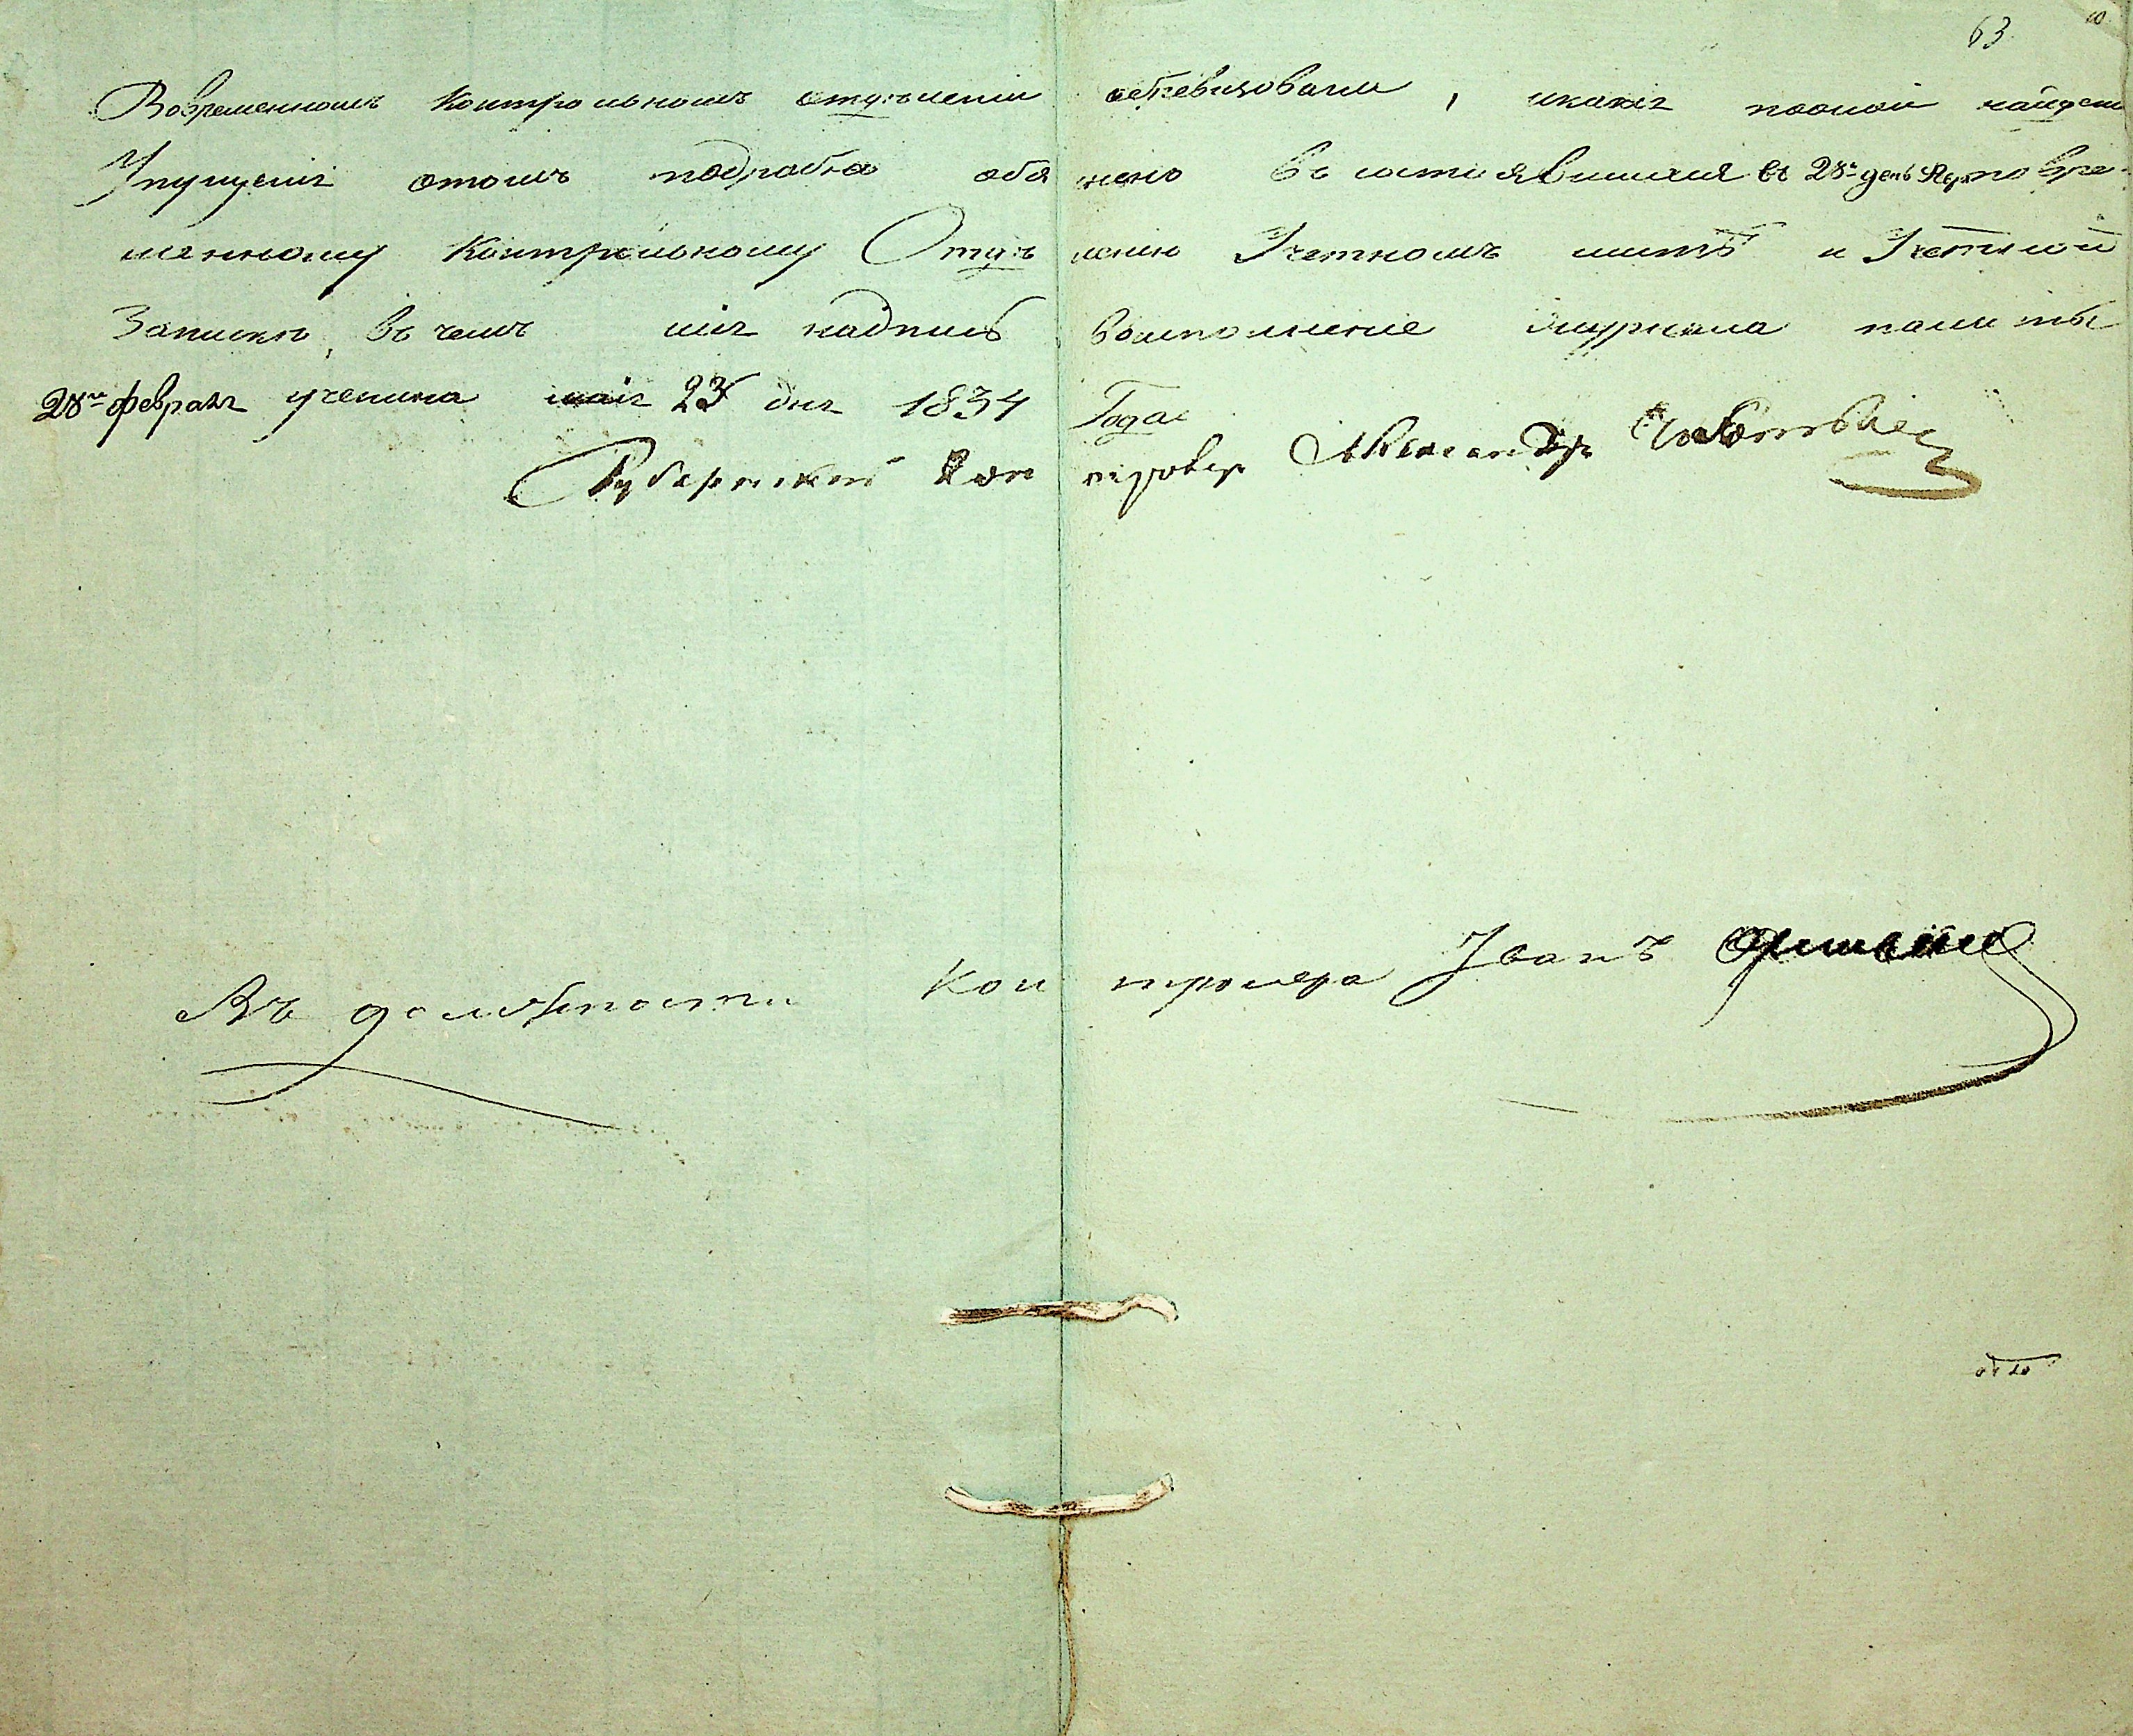 63
Вовременномъ Контрольномъ отделенiи обревизована, икакiя пооной найдены
Упущенiя отомъ подробно объяснено въ состоявшихся въ 28й день Февр. по вре-
менному Контрольному Отделению Учетномъ листѣ и Учетной
Записки, въ чемъ сiя надпись восполненiе журнала палаты
28го февраля учинена маiя 23 дня 1834 Года
Губернскiй Контролеръ Александръ
Въ должности Контролера Иванъ